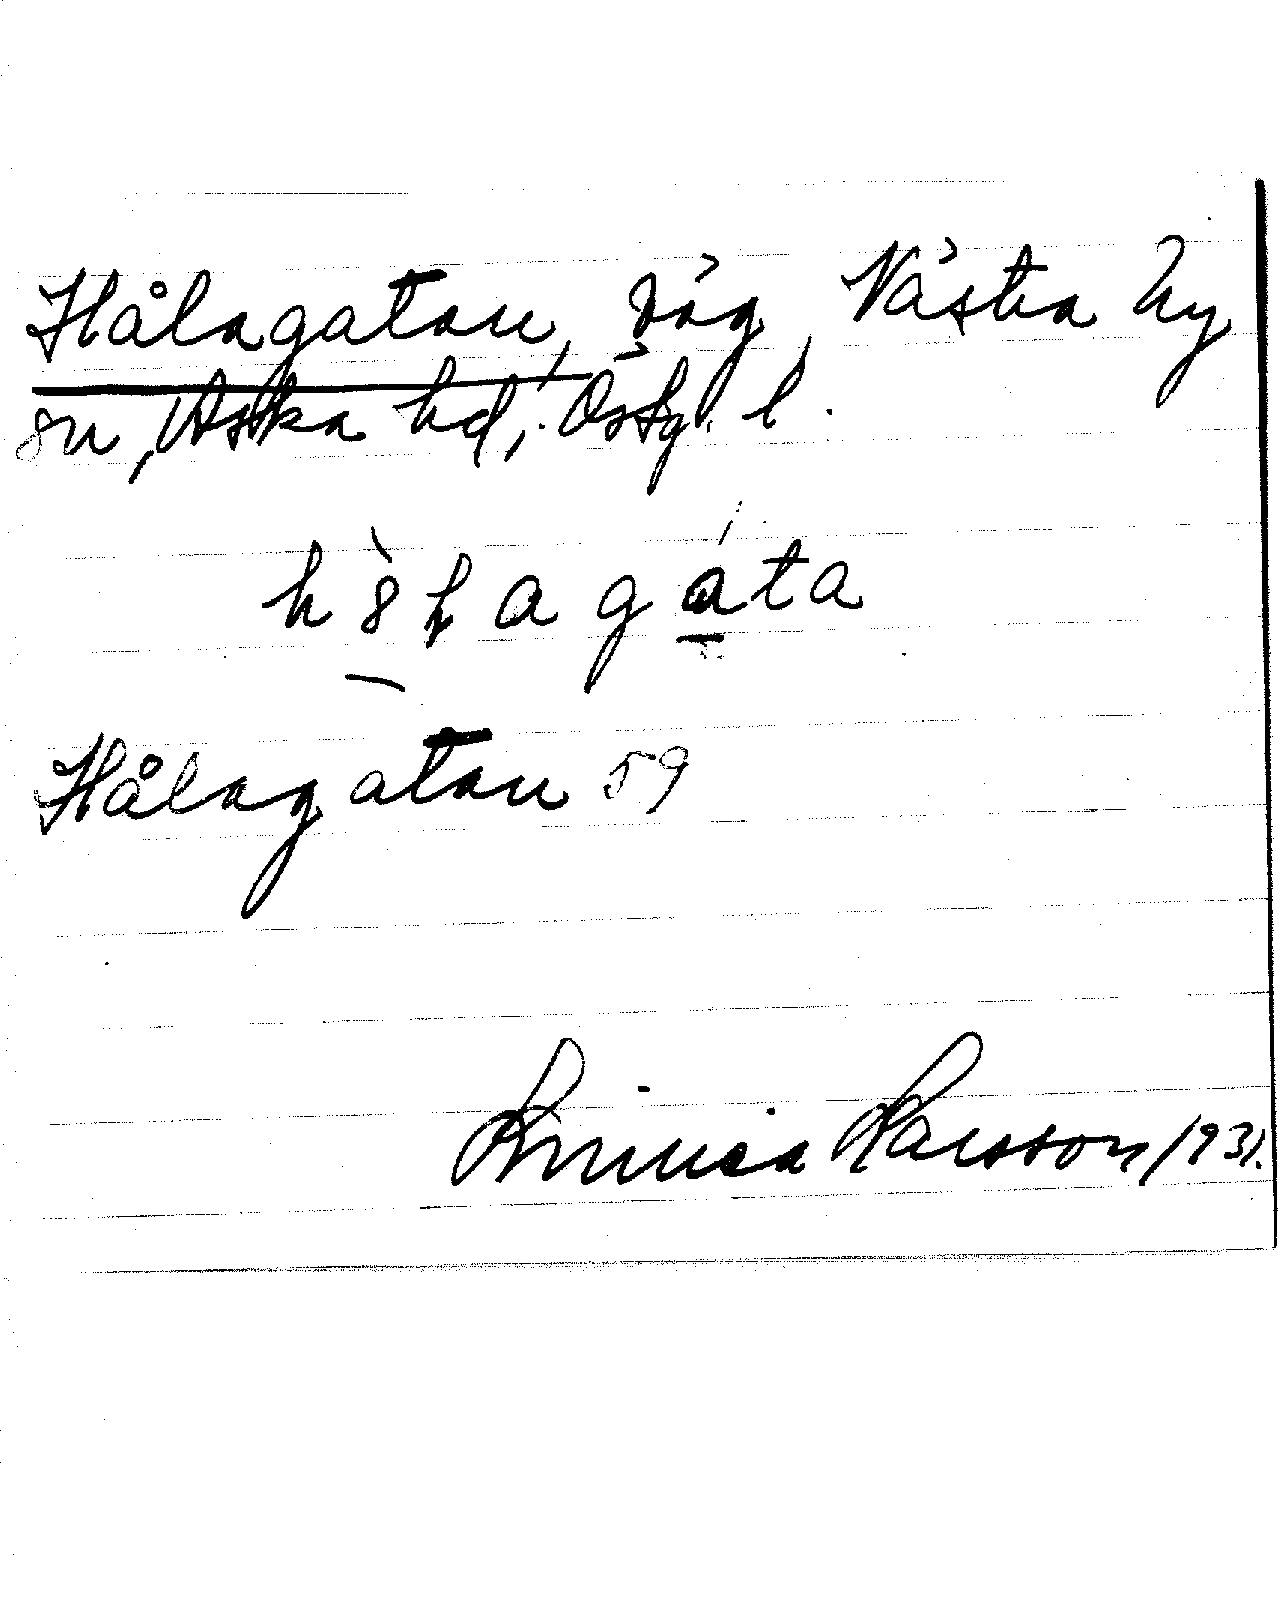 Hålagatan, väg, Västra Ny
sn, Aska hd, Östg. l.
hålagata
Hålagatan 59
Linnea Larsson 1931.